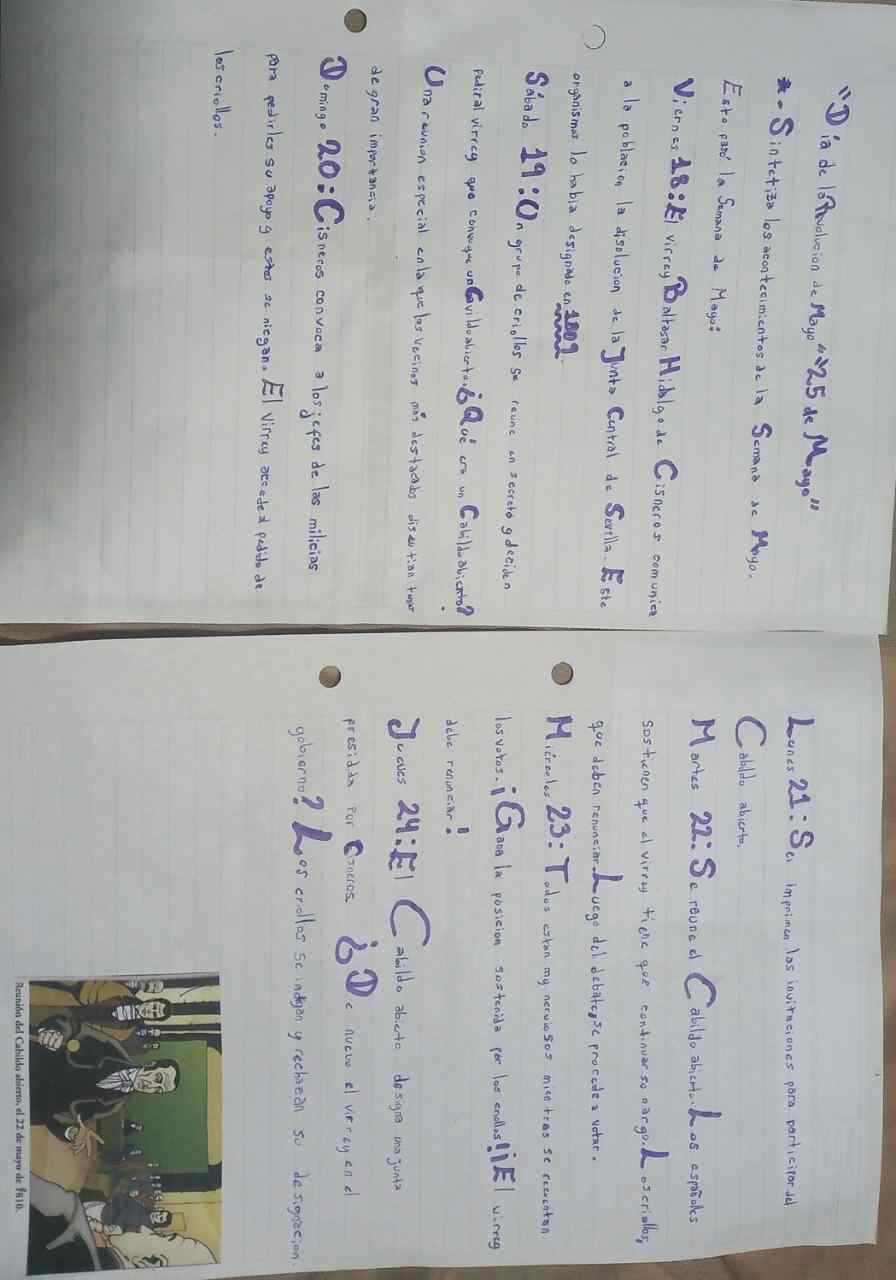 "Día de la Revolucion de Mayo" "25 de Mayo"
*- Sintetiza los acontecimientos de la Semana de Mayo.
Esto pasó la Semana de Mayo:
Viernes 18: El virrey Baltasar Hidalgo de Cisneros comunica
a la poblacion la disolucion de la Junta Central de Sevilla. Este
organismos lo habia designado en 1809.
Sábado 19: Un grupo de criollos se reune en secreto y deciden
pedir al virrey que convoque un Cavildo abierto. ¿Qué era un Cabildo abierto?
Una reunion especial en la que los vecinos más destacados discutian
de gran importancia.
Domingo 20: Cisneros convoca a los jefes de las milicias
para pedirles su apoyo y estos se niegan. El Virrey accede al pedido de
los criollos.
Lunes 21: Se imprimen las invitaciones para participar del
Cabildo abierto.
Martes 22: Se reune el Cabildo abierto. Los españoles
sostienen que el virrey tiene que continuar su cargo. Los criollos,
que deben renunciar. Luego del debate, se procede a votar.
Miércoles 23: Todos estan my nerviosos mientras se recuentan
los votos. ¡Gana la posicion sostenida por los criollos! ¡El virrey
debe renunciar!
Jueves 24: El Cabildo abierto designa una junta
presidida por Cisneros. ¿De nuevo el virrey en el
gobierno? Los criollos se indignan y rechazan su designacion.
Reunión del Cabildo abierto, el 22 de mayo de 1810.